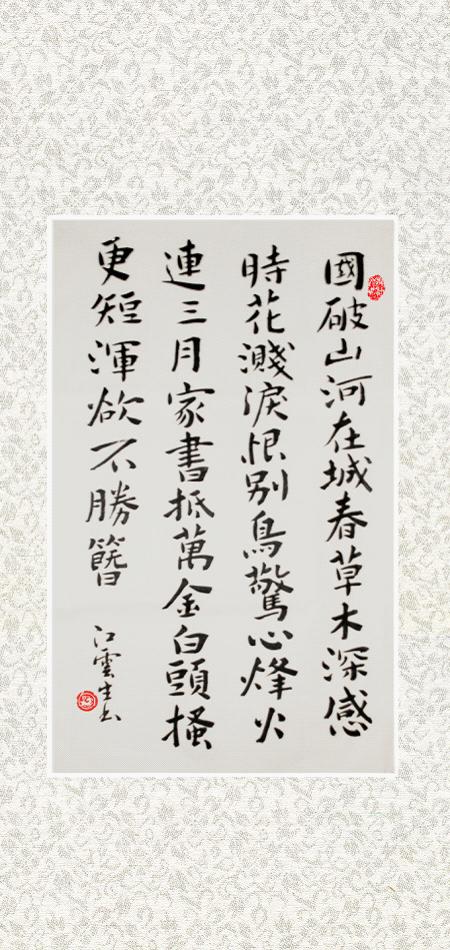 國破山河在城春草木深感
時花濺淚恨别鳥驚心烽火
連三月家書抵萬金白頭搔
更短渾欲不勝簪
江雲生書